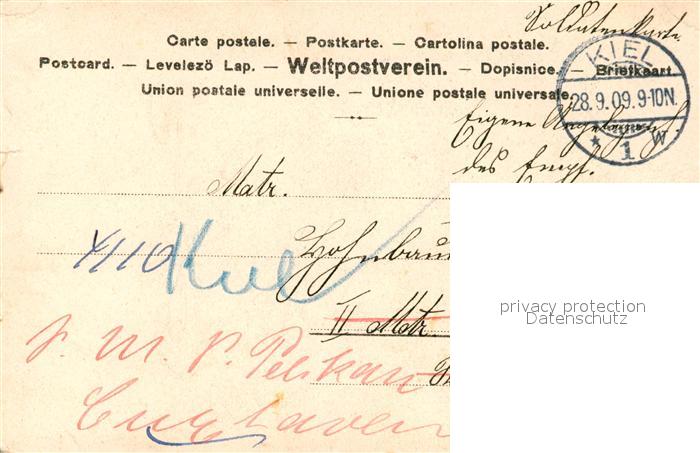 Soldatenkarte
Carte postale. — Postkarte. — Cartolina postale.
Postcard. — Levelező Lap. — Weltpostverein. — Dopisnice. — Briefkaart.
Union postale universelle. — Unione postale universale.
KIEL
28.9.09.9-10N.
* 1 W
Eigene
des Empf.
Matr.
Kiel
II Matr.
S. M. S. Pelikan
Cuxhaven
privacy protection
Datenschutz